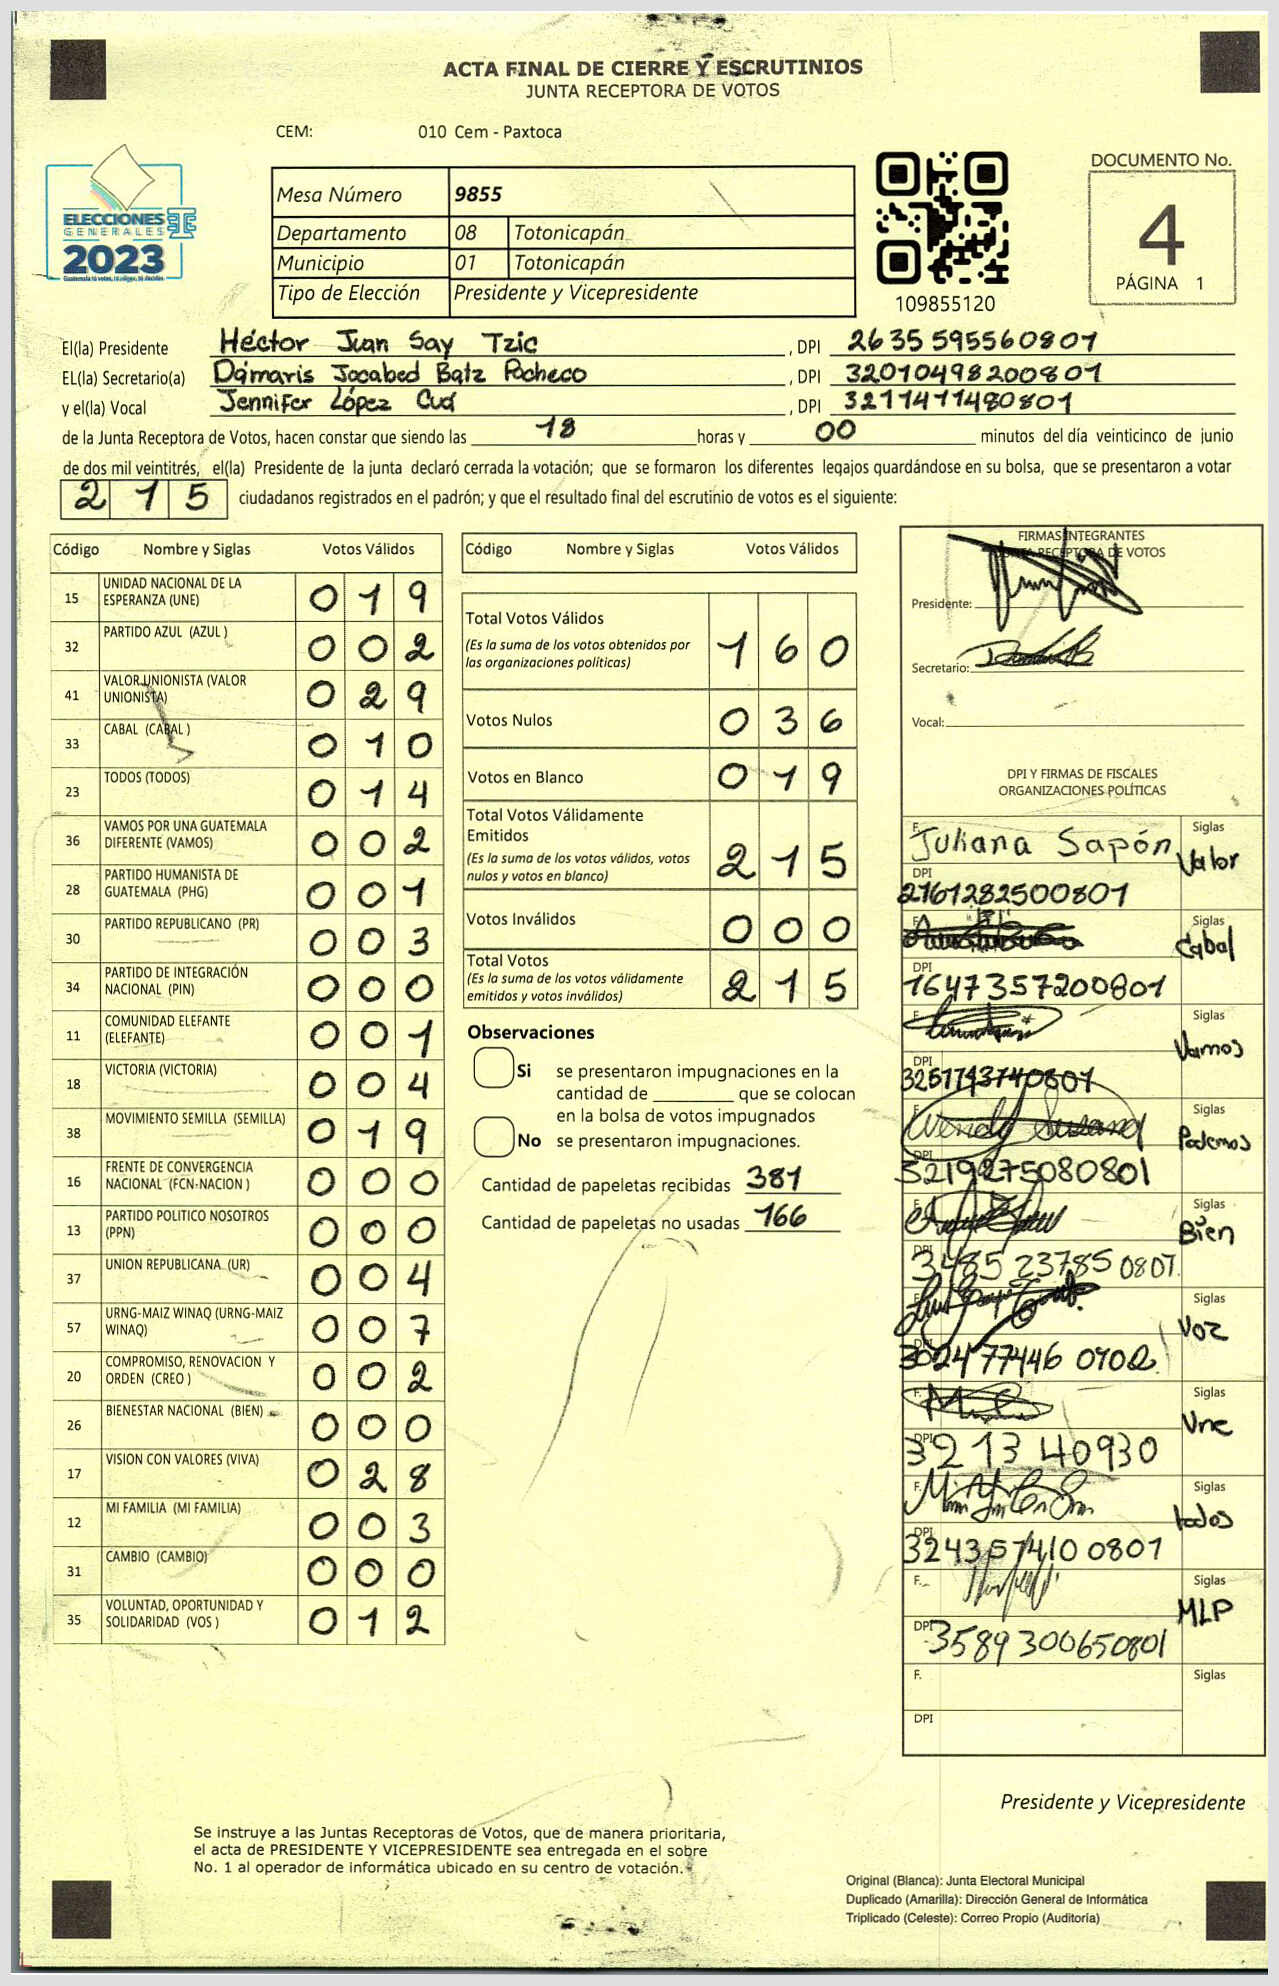 ACTA FINAL DE CIERRE Y ESCRUTINIOS
JUNTA RECEPTORA DE VOTOS
CEM: 010 Cem - Paxtoca
ELECCIONES
GENERALES
2023
Mesa Número 9855
Departamento 08 Totonicapán
Municipio 01 Totonicapán
Tipo de Elección Presidente y Vicepresidente
109855120
DOCUMENTO No.
4
PÁGINA 1
El(la) Presidente Héctor Juan Say Tzic , DPI 2635 595560801
EL(la) Secretario(a) Dámaris Jocabed Batz Pacheco , DPI 32010498200801
y el(la) Vocal Jennifer López Cua , DPI 3211411480801
de la Junta Receptora de Votos, hacen constar que siendo las 18 horas y 00 minutos del día veinticinco de junio
de dos mil veintitrés, el(la) Presidente de la junta declaró cerrada la votación; que se formaron los diferentes legajos guardándose en su bolsa, que se presentaron a votar
215 ciudadanos registrados en el padrón; y que el resultado final del escrutinio de votos es el siguiente:
Código Nombre y Siglas Votos Válidos
15 UNIDAD NACIONAL DE LA ESPERANZA (UNE) 019
32 PARTIDO AZUL (AZUL ) 002
41 VALOR UNIONISTA (VALOR UNIONISTA) 029
33 CABAL (CABAL ) 010
23 TODOS (TODOS) 014
36 VAMOS POR UNA GUATEMALA DIFERENTE (VAMOS) 002
28 PARTIDO HUMANISTA DE GUATEMALA (PHG) 001
30 PARTIDO REPUBLICANO (PR) 003
34 PARTIDO DE INTEGRACIÓN NACIONAL (PIN) 000
11 COMUNIDAD ELEFANTE (ELEFANTE) 001
18 VICTORIA (VICTORIA) 004
38 MOVIMIENTO SEMILLA (SEMILLA) 019
16 FRENTE DE CONVERGENCIA NACIONAL (FCN-NACION ) 000
13 PARTIDO POLITICO NOSOTROS (PPN) 000
37 UNION REPUBLICANA (UR) 004
57 URNG-MAIZ WINAQ (URNG-MAIZ WINAQ) 007
20 COMPROMISO, RENOVACION Y ORDEN (CREO ) 002
26 BIENESTAR NACIONAL (BIEN) 000
17 VISION CON VALORES (VIVA) 028
12 MI FAMILIA (MI FAMILIA) 003
31 CAMBIO (CAMBIO) 000
35 VOLUNTAD, OPORTUNIDAD Y SOLIDARIDAD (VOS ) 012
Código Nombre y Siglas Votos Válidos
Total Votos Válidos 160
(Es la suma de los votos obtenidos por
las organizaciones políticas)
Votos Nulos 036
Votos en Blanco 019
Total Votos Válidamente
Emitidos 215
(Es la suma de los votos válidos, votos
nulos y votos en blanco)
Votos Inválidos 000
Total Votos 215
(Es la suma de los votos válidamente
emitidos y votos inválidos)
Observaciones
Si se presentaron impugnaciones en la
cantidad de ________ que se colocan
en la bolsa de votos impugnados
No se presentaron impugnaciones.
Cantidad de papeletas recibidas 381
Cantidad de papeletas no usadas 166
FIRMAS INTEGRANTES
JUNTA RECEPTORA DE VOTOS
Presidente:
Secretario:
Vocal:
DPI Y FIRMAS DE FISCALES
ORGANIZACIONES POLÍTICAS
F. Juliana Sapón Siglas Valor
DPI 2161282500801
F. Siglas Cabal
DPI 1647357200801
F. Siglas Vamos
DPI
F. Wendy Siglas Podemos
DPI 3219275080801
F. Siglas Bien
DPI 3485 23785 0801
F. Siglas Voz
DPI
F. Siglas Une
DPI 3213 40930
F. Siglas todos
DPI 3243574100801
F. Siglas MLP
DPI 3589 300650801
F. Siglas
DPI
Presidente y Vicepresidente
Se instruye a las Juntas Receptoras de Votos, que de manera prioritaria,
el acta de PRESIDENTE Y VICEPRESIDENTE sea entregada en el sobre
No. 1 al operador de informática ubicado en su centro de votación.
Original (Blanca): Junta Electoral Municipal
Duplicado (Amarilla): Dirección General de Informática
Triplicado (Celeste): Correo Propio (Auditoría)